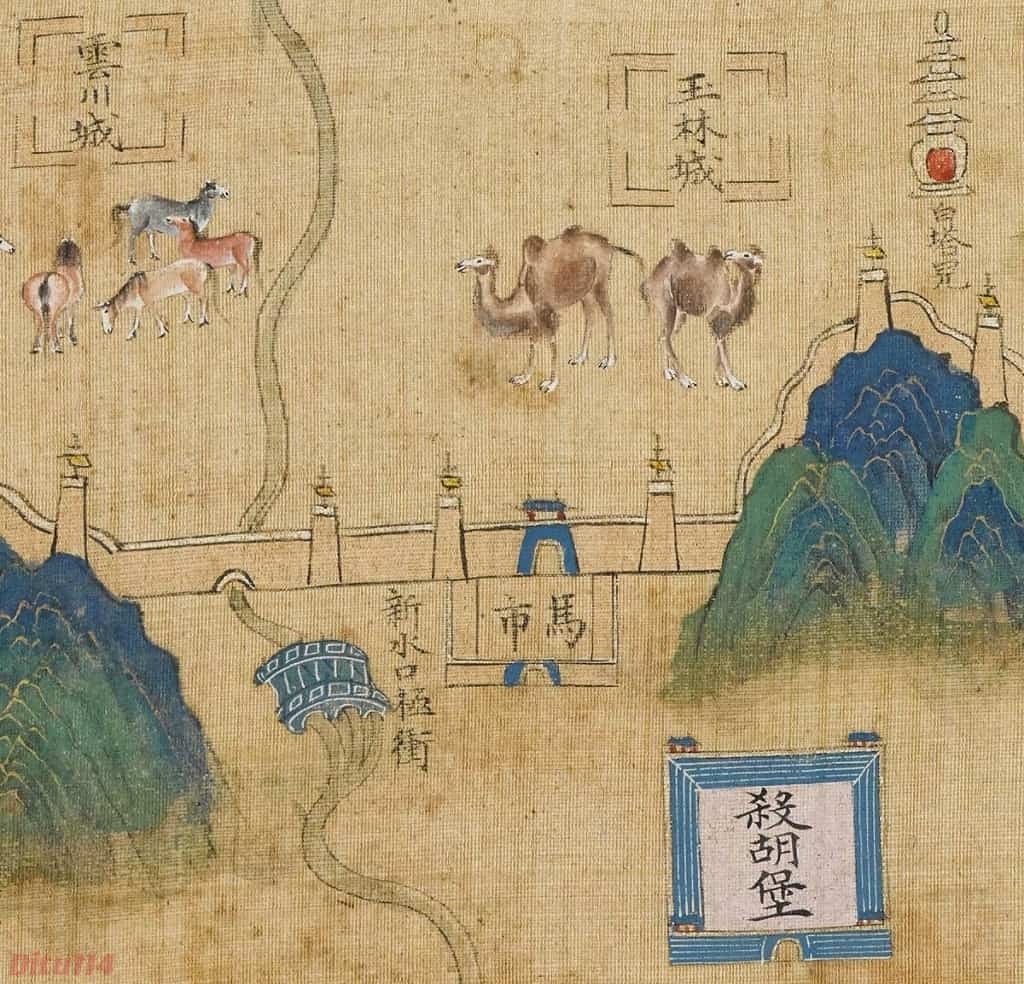 雲川城
玉林城
白塔兒
新水口極衝
馬市
殺胡堡
Ditu114